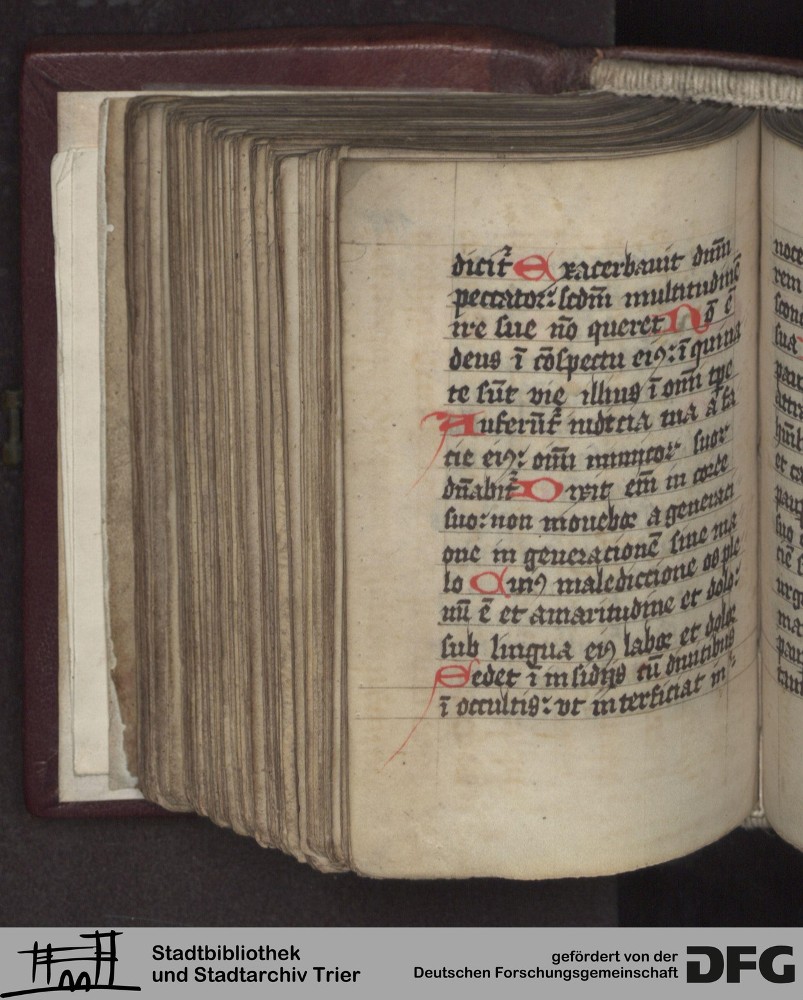 dicit᷑ Exacerbauit dn̄m
peccator: scdm̄ multitudinē
ire sue nō queret Nō ē
deus ī cōspectu eiꝯ: īquina
te sūt vie illius ī om̄i tpe
Auferūt᷑ iudicia tua a fa
cie eiꝯ: om̄i inimicoꝝ suoꝝ
dn̄abit᷑ Dixit em̄ in corde
suo: non mouebor a generaci
one in generacionē sine ma
lo Cuiꝯ malediccione os ple
nū ē et amaritudine et dolo:
sub lingua eiꝯ labor et dolor
Sedet ī insidijs cū diuitibus
ī occultis: vt interficiat in
noce
rem
sua
pau
et ca
pau
suo
ciē
urge
ma
pau
Stadtbibliothek
und Stadtarchiv Trier
gefördert von der
Deutschen Forschungsgemeinschaft
DFG